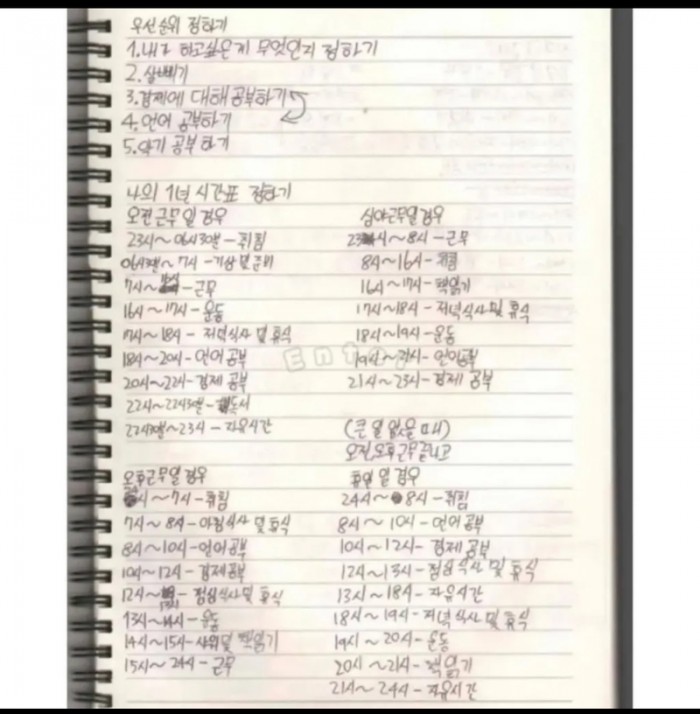 우선순위 정하기
1. 내가 하고싶은게 무엇인지 정하기
2. 살빼기
3. 경제에 대해 공부하기
4. 언어 공부하기
5. 악기 공부하기
나의 1년 시간표 정하기
오전근무일경우
23시~06시30분-취침
06시30분~7시-기상 및 준비
7시~ -근무
16시~17시-운동
17시~18시-저녁식사 및 휴식
18시~20시-언어공부
20시~22시-경제 공부
22시~22시30분-독서
22시30분~23시-자유시간
심야근무일경우
23시~8시-근무
8시~16시-취침
16시~17시-책읽기
17시~18시-저녁식사 및 휴식
18시~19시-운동
19시~21시-언어공부
21시~23시-경제 공부
(큰 일 없을 때)
오전,오후근무끝나고
오후근무일경우
~7시-취침
7시~8시-아침식사 및 휴식
8시~10시-언어공부
10시~12시-경제공부
12시~13시-점심식사 및 휴식
13시~14시-운동
14시~15시-샤워및 책읽기
15시~24시-근무
휴일 일 경우
24시~8시-취침
8시~10시-언어공부
10시~12시-경제공부
12시~13시-점심식사 및 휴식
13시~18시-자유시간
18시~19시-저녁식사 및 휴식
19시~20시-운동
20시~21시-책읽기
21시~24시-자유시간